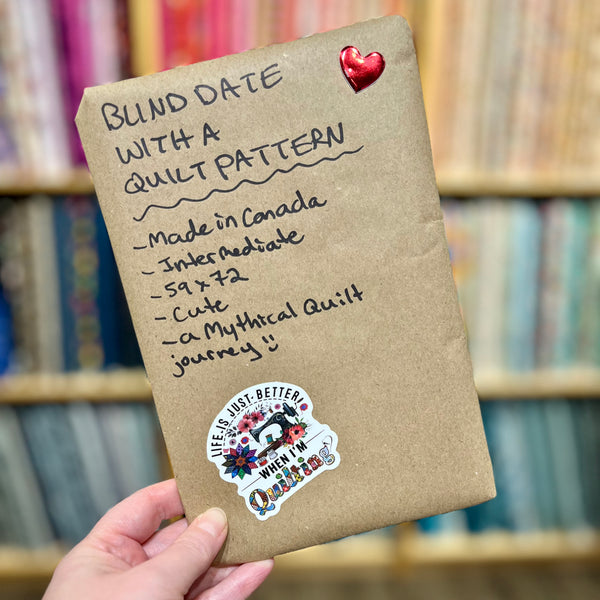 BLIND DATE
WITH A
QUILT PATTERN
- Made in Canada
- Intermediate
- 59 x 72
- Cute
- a Mythical Quilt
journey
LIFE IS JUST BETTER!
WHEN I'M
Quilting